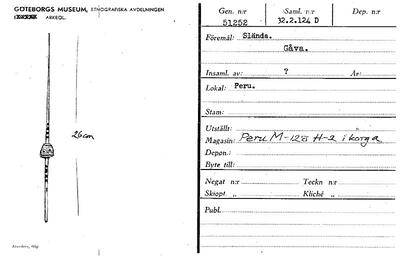 GÖTEBORGS MUSEUM, ETNOGRAFISKA AVDELNINGEN
ARKEOL.
26cm
Gen. n:r
51252
Saml. n:r
32.2.124 D
Dep. n:r
Föremål: Slända.
Gåva.
Insaml. av: ? År:
Lokal: Peru.
Stam:
Utställt:
Magasin: Peru M-128 H-2 i korga
Depon.:
Byte till:
Negat n:r Teckn n:r
Skiopt. „ Kliché „
Publ.